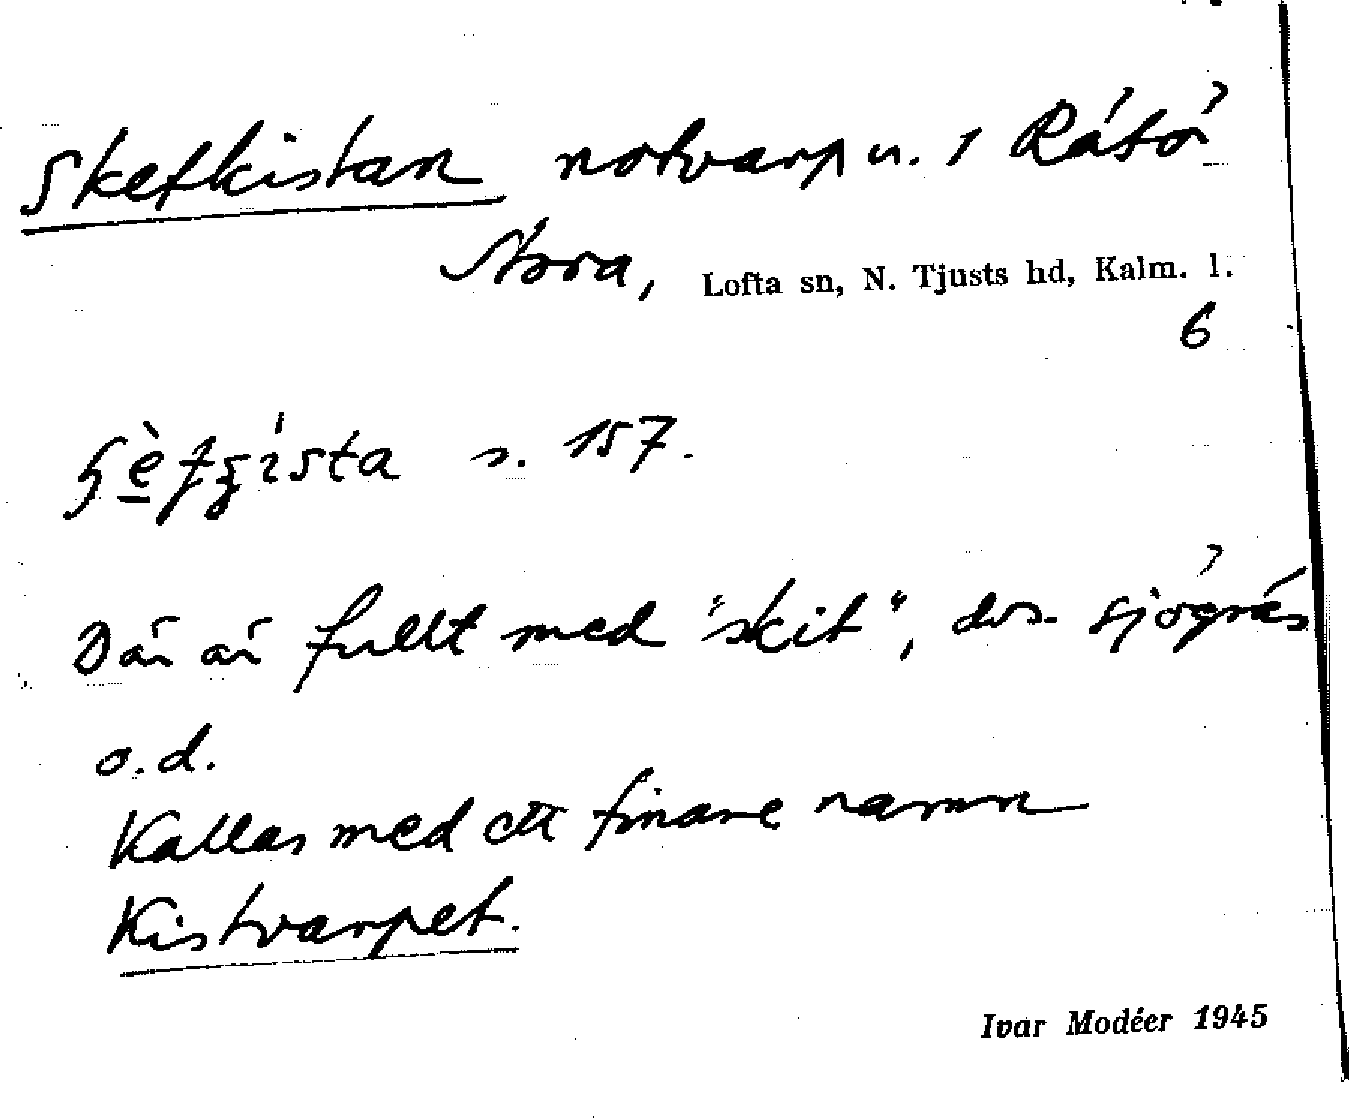 Sketkistan notvarp u. 1 Råtö
Stora, Lofta sn, N. Tjusts hd, Kalm. l.
6
s. 157.
Där är fullt med "skit", dvs. sjögräs
o.d.
Kallas med ett finare namn
Kistvarpet.
Ivar Modéer 1945